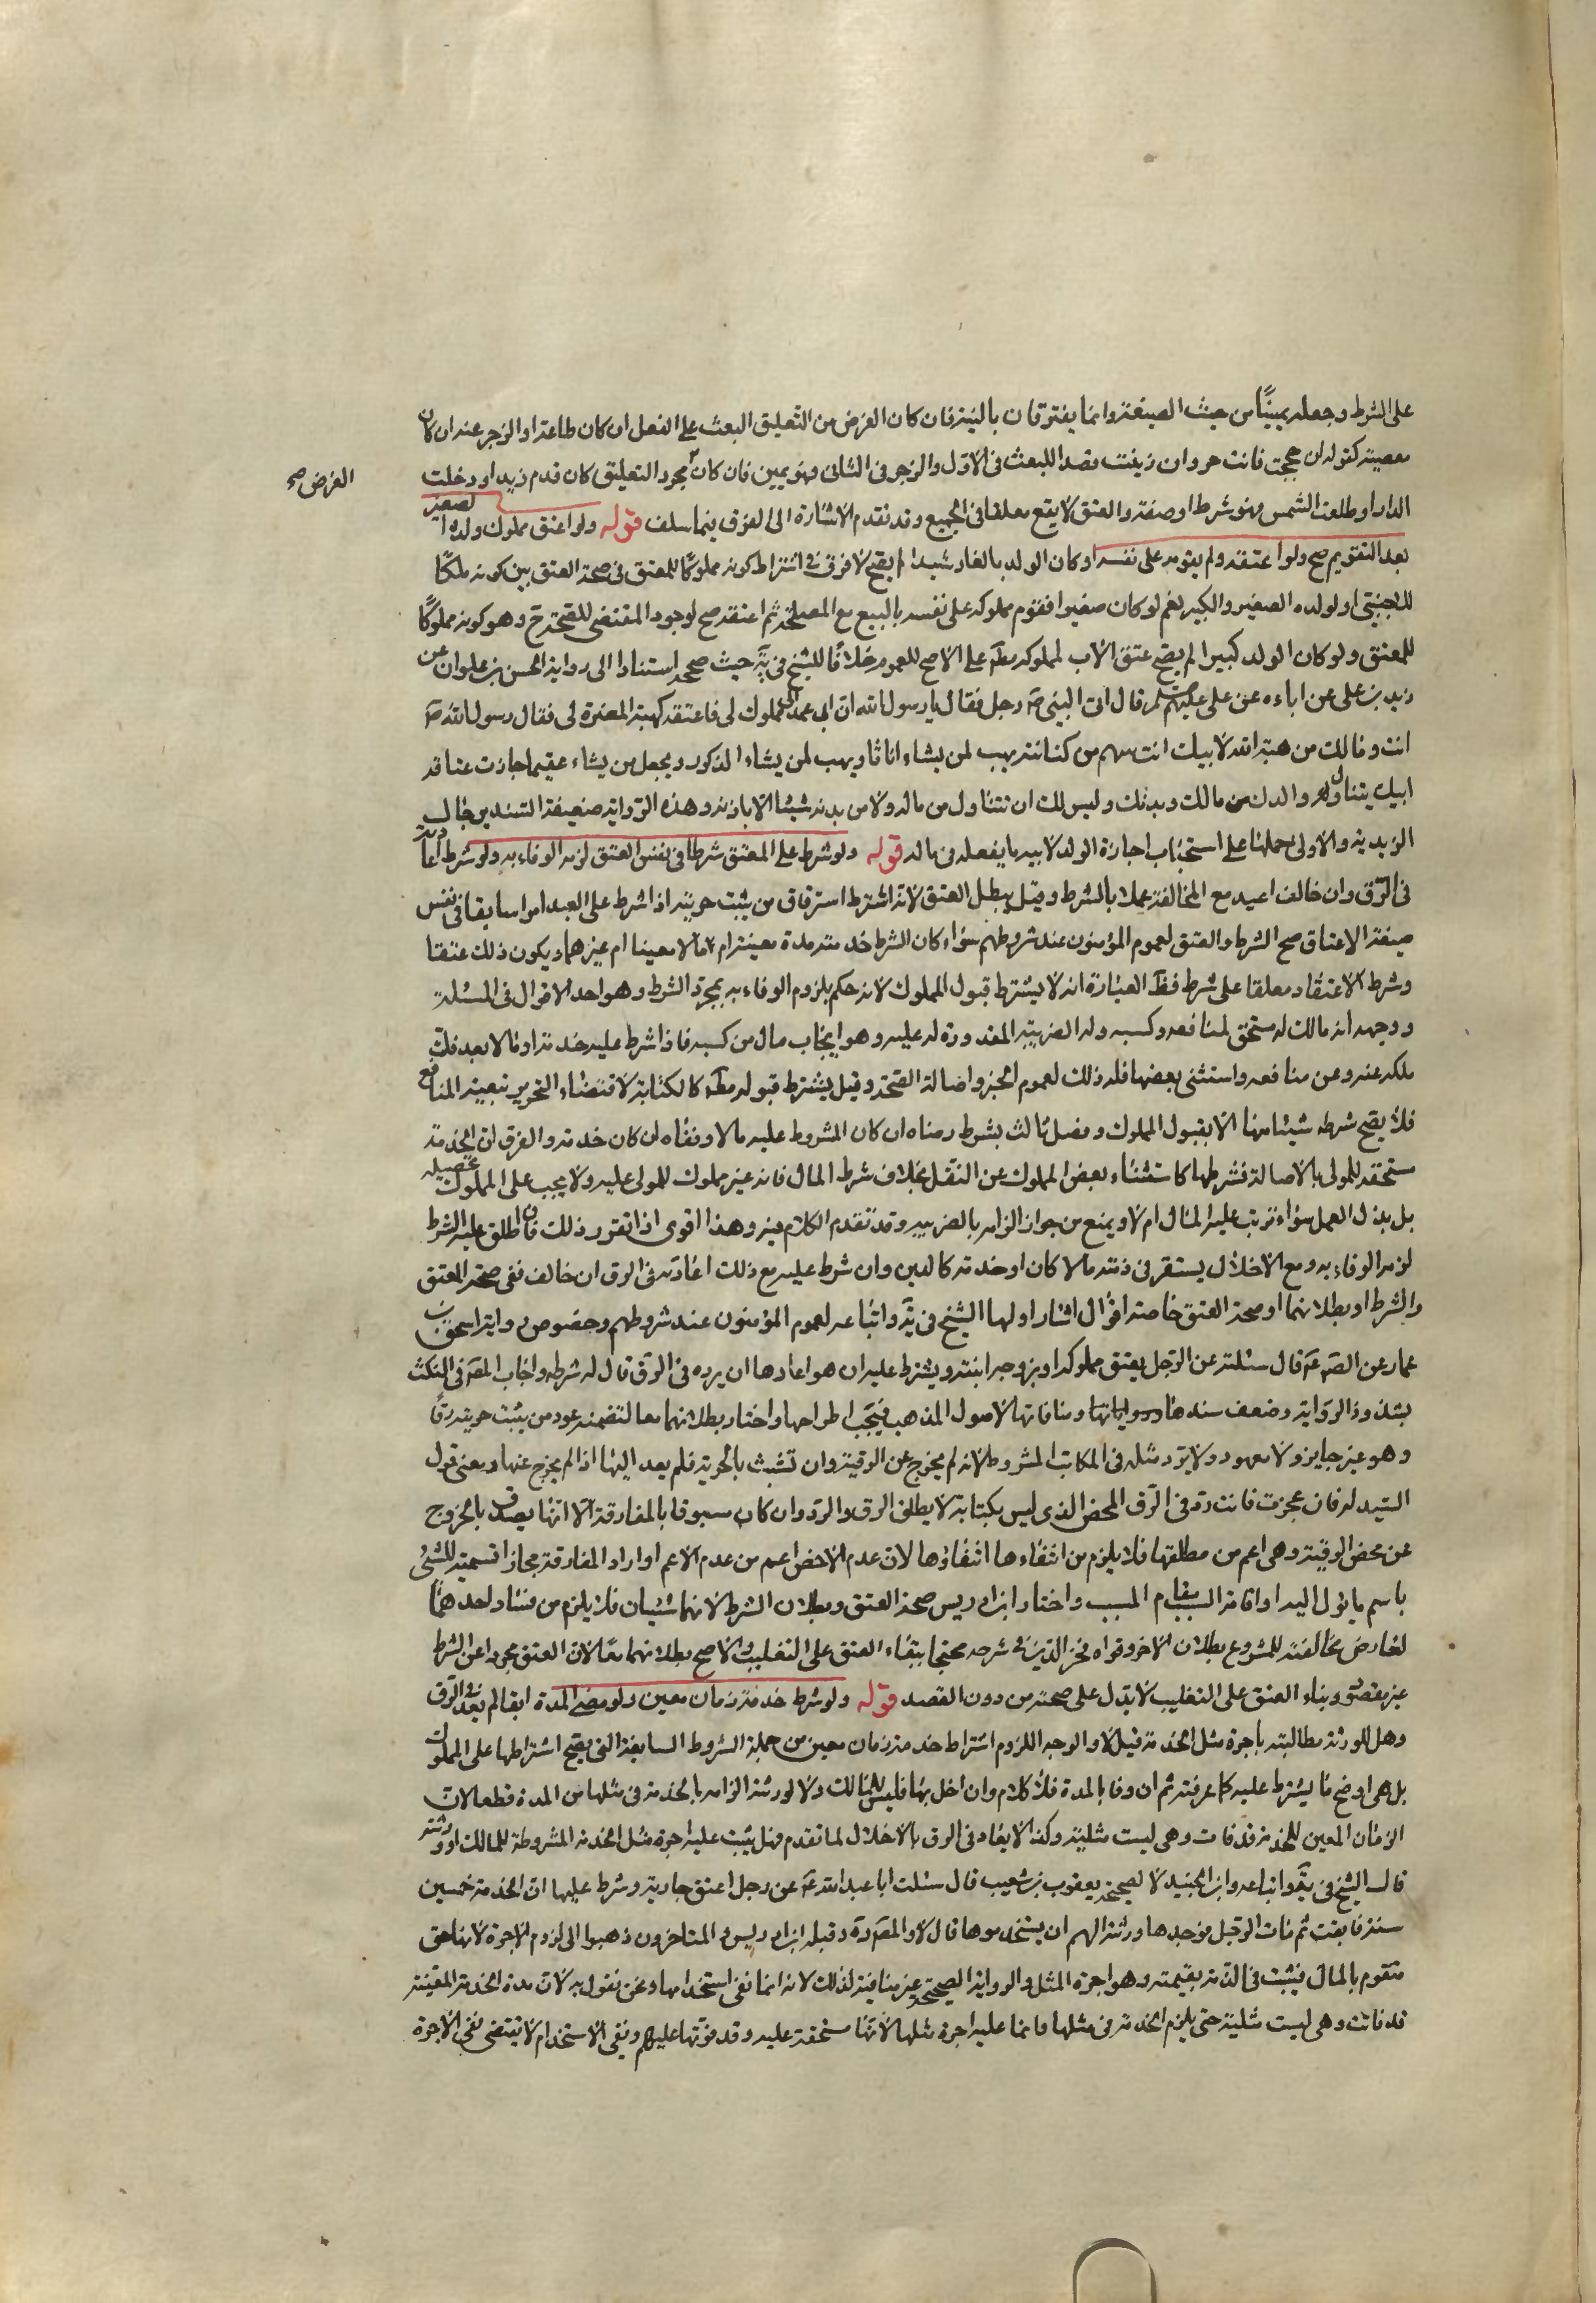 على الشرط وجعله يمينًا من حيث الصيغة وانما يفترقان بالنية فان كان الغرض من التعليق البعث على الفعل ان كان طاعة او الزجر عنه ان كان
معصية كقوله ان حججت فانت حر وان زنيت قصد اللبعث في الاول والزجر في الثاني فهو يمين فان كان مجرد التعليق كان قدم زيد او دخلت
الغرض صح
الدار او طلعت الشمس فهو شرط او صفة والعتق لا يقع معلقا في الجميع وقد تقدم الاشارة الى الفرق فيما سلف قوله ولو اعتق مملوك ولده الصغير
بعد التقويم صح ولو اعتقه ولم يقومه على نفسه او كان الولد بالغا رشيدا لم يصح لا فرق في اشتراط كونه مملوكًا للمعتق في صحة العتق بين كونه ملكًا
للاجنبي او لولده الصغير والكبير نعم لو كان صغيرا فقوم مملوكه على نفسه بالبيع مع المصلحة ثم اعتقه صح لوجود المقتضى للصحة ح وهو كونه مملوكًا
للمعتق ولو كان الولد كبيرا لم يصح عتق الاب لمملوكه مطلقا على الاصح للعموم خلافًا للشيخ في يه حيث صححه استنادا الى رواية الحسن بن علوان عن
زيد بن على عن اباءه عن على عليهم السلم قال اتى النبي ص رجل فقال يا رسول الله ان ابى عمد الى مملوك لى فاعتقه كهيئة المضرة لى فقال رسول الله ص
انت ومالك من هبة الله لابيك انت سهم من كنانته يهب لمن يشاء اناثا ويهب لمن يشاء الذكور ويجعل من يشاء عقيما جازت عتاقة
ابيك يتناول والدك من مالك وبدنك وليس لك ان تتناول من ماله ولا من بدنه شيئا الا باذنه وهذه الرواية ضعيفة السند برجال
الزيدية والاولى حملها على استحباب اجازة الولد لابيه ما يفعله في ماله قوله ولو شرط على المعتق شرطا في نفس العتق لزمه الوفاء به ولو شرط اعادته
في الرق وان خالف اعيد مع المخالفة عملا بالشرط وقيل يبطل العتق لانه اشترط استرقاق من يثبت حريته اذا شرط على العبد امرا سايغا في نفس
صيغة الاعتاق صح الشرط والعتق لعموم المؤمنون عند شروطهم سواء كان الشرط خدمته مدة معينة ام مالا معينا ام غيرهما ويكون ذلك عتقا
وشرط لا عتقا معلقا على شرط فظ العبارة انه لا يشترط قبول المملوك لانه حكم بلزوم الوفاء به بمجرد الشرط وهو احد الاقوال في المسئلة
ووجهه انه مالك له مستحق لمنافعه وكسبه وله الضريبة المقدورة له عليه وهو ايجاب مال من كسبه فاذا شرط عليه خدمة او مالا بعد فك
ملكه عنه وعن منافعه واستثنى بعضها فله ذلك لعموم الخبر واصالة الصحة وقيل يشترط قبوله مط كالكتابة لاقتضاء التحرير تبعية المنافع
فلا يصح شرطه شيئا منها الا بقبول المملوك وفصل ثالث بشرط رضاه ان كان المشروط عليه مالا ونفاه ان كان خدمة والفرق ان الخدمة
مستحقة للمولى بالاصالة فشرطها كاستثناء بعض المملوك عن النقل بخلاف شرط المال فانه غير مملوك للمولى عليه ولا يجب على المملوك تحصيله
بل بذل العمل سواء ترتب عليه المال ام لا ويمنع من جواز الزامه بالضريبه وقد تقدم الكلام فيه وهذا اقوى اذا تقرر ذلك فان اطلق عليه الشرط
لزمه الوفاء به ومع الاخلال يستقر في ذمته مالا كان او خدمة كالدين وان شرط عليه مع ذلك اعادته في الرق ان خالف ففى صحة العتق
والشرط او بطلانهما او صحة العتق خاصة اقوال اشار اولها الشيخ في يه واتباعه لعموم المؤمنون عند شروطهم وخصوص رواية اسحق بن
عمار عن الصم ع قال سئلته عن الرجل يعتق مملوكه او يزوجه ابنته ويشترط عليه ان هو اعادها ان يرده في الرق قال له شرطه واجاب المص في النكت
بشذوذ الرواية وضعف سندها ومنافاتها لاصول المذهب فيجب اطراحها واختار بطلانهما معا لتضمنه عود من يثبت حريته رقًا
وهو غير جايز ولا معهود ولا يرد مثله في المكاتب المشروط لانه لم يخرج عن الرقية وان تشبث بالحرية فلم يعد اليها اذا لم يخرج عنها ومعنى قول
السيد له فان عجزت فانت رد في الرق المحض الذى ليس بكتابة لا يطلق الرق والرد وان كان مسبوقا بالمفارقة الا انها يصدق بالخروج
عن محض الرقية وهى اعم من مطلقها فلا يلزم من انتفاءها انتفاؤها لان عدم الاخص اعم من عدم الاعم او اراد المفارقة مجازا تسمية للشئ
باسم ما يؤل اليه او اقامة السبب مقام المسبب واختار ابن ادريس صحة العتق وبطلان الشرط لانهما شيئان فلا يلزم من فساد احدهما
لعارض مخالفته للمشروع بطلان الاخر وقواه فخر الدين في شرحه محتجا ببناء العتق على التغليب والاصح بطلانهما معًا لان العتق مجردا عن الشرط
غير مقصود وبناء العتق على التغليب لا يدل على صحته من دون القصد قوله ولو شرط خدمة زمان معين ولو مضى المدة ابقا لم يعد في الرق
وهل للورثة مطالبته باجرة مثل الخدمة قيل لا والوجه اللزوم اشتراط خدمة زمان معين من جملة الشروط السابقة التى يصح اشتراطها على المملوك
بل هى اوضح ما يشترط عليه كما عرفته ثم ان وفا بالمدة فلا كلام وان اخل بها فليس للمالك ولا لورثته الزامه بالخدمة في مثلها من المدة قطعا لان
الزمان المعين للخدمة قد فات وهى ليست مثلية وكذا لا يعاد في الرق بالاخلال لما تقدم وهل يثبت عليه اجرة مثل الخدمة المشروطة للمالك او ورثته
قال الشيخ في يه واتباعه وابن الجنيد لا لصحيحة يعقوب بن شعيب قال سئلت ابا عبد الله ع عن رجل اعتق جارية وشرط عليها ان الخدمة خمسين
سنة فابقت ثم مات الرجل فوجدها ورثته الهم ان يستخدموها قال لا والمص ره وقبله ابن ادريس والمتاخرون ذهبوا الى لزوم الاجرة لانها حق
متقوم بالمال فيثبت في الذمة بقيمته وهو اجرة المثل والرواية الصحيحة غير منافية لذلك لانه انما نفى استخدامها ونحن نقول به لان مدة الخدمة المعينة
قد فاتت وهى ليست مثلية حتى يلزم الخدمة في مثلها وانما عليه اجرة مثلها لانها مستحقة عليه وقد فوتها عليهم ونفى الاستخدام لا يقتضى نفى الاجرة